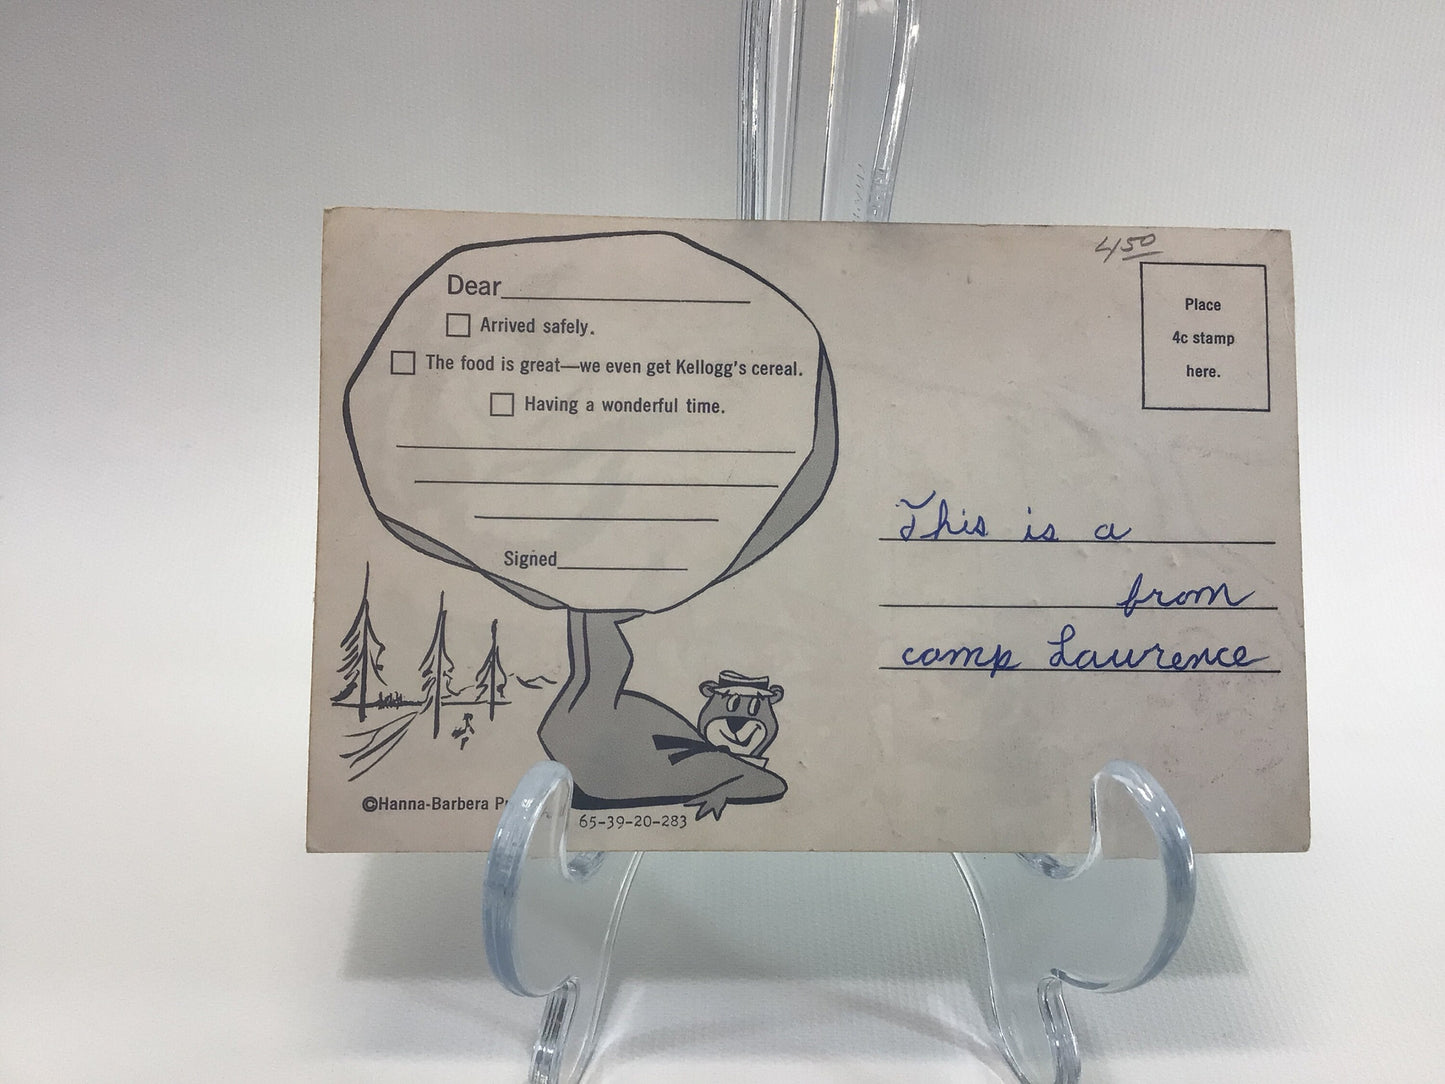 450
Place
4c stamp
here.
Dear
Arrived safely.
The food is great—we even get Kellogg's cereal.
Having a wonderful time.
Signed
This is a
from
camp Lawrence
©Hanna-Barbera
65-39-20-283